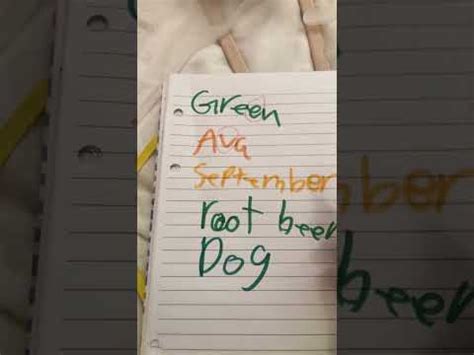 Green
Ava
September
root beer
Dog